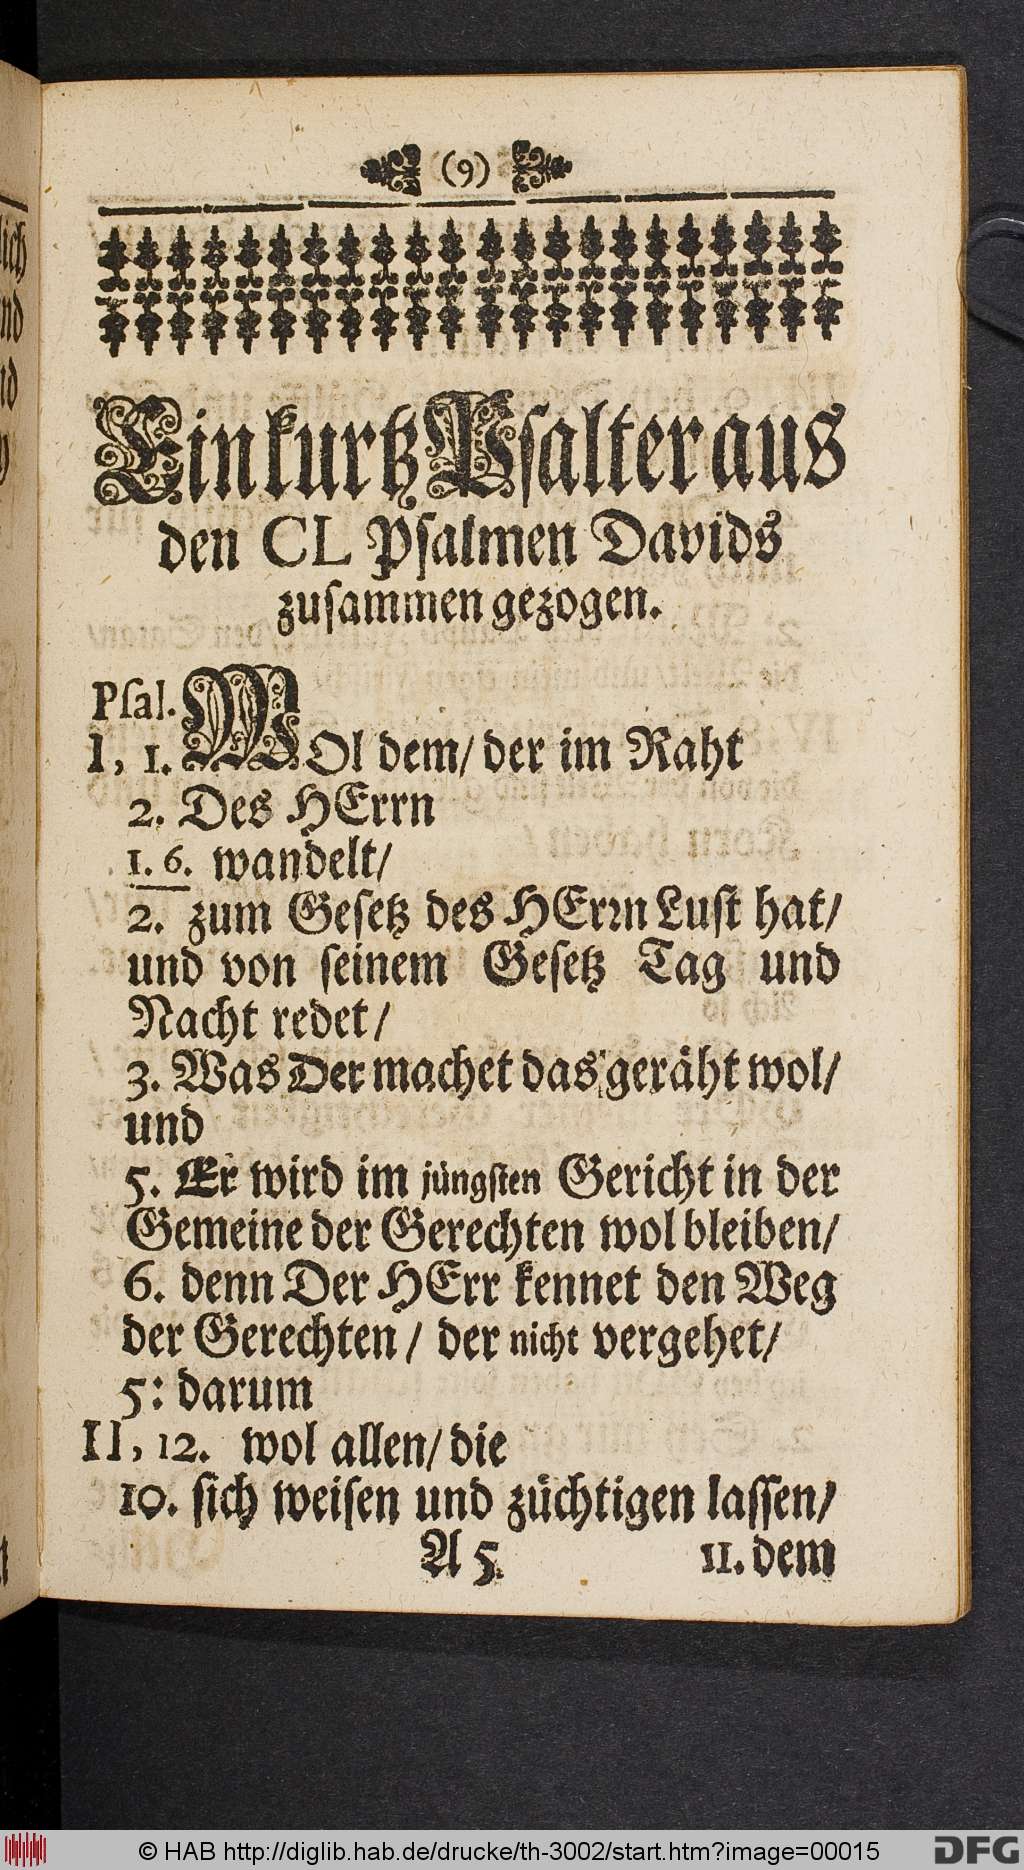 (9)
Ein kurtz Psalter aus
den CL Psalmen Davids
zusammen gezogen.
Psal.
I, 1. WOl dem/ der im Raht
2. Des HErrn
1. 6. wandelt/
2. zum Gesetz des HErrn Lust hat/
und von seinem Gesetz Tag und
Nacht redet/
3. Was Der machet das geräht wol/
und
5. Er wird im jüngsten Gericht in der
Gemeine der Gerechten wol bleiben/
6. denn Der HErr kennet den Weg
der Gerechten/ der nicht vergehet/
5: darum
II, 12. wol allen/ die
10. sich weisen und züchtigen lassen/
A 5. 11. dem
© HAB http://diglib.hab.de/drucke/th-3002/start.htm?image=00015
DFG